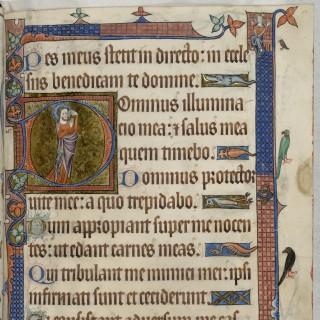 Pes meus stetit in directo: in eccle
siis benedicam te domine.
Dominus illumina
cio mea: ⁊ salus mea
quem timebo.
Dominus protector
uite mee: a quo trepidabo.
Dum appropiant super me nocen
tes: ut edant carnes meas.
Qui tribulant me inimici mei: ipsi
infirmati sunt et ceciderunt.
Si consistant aduersum me cas